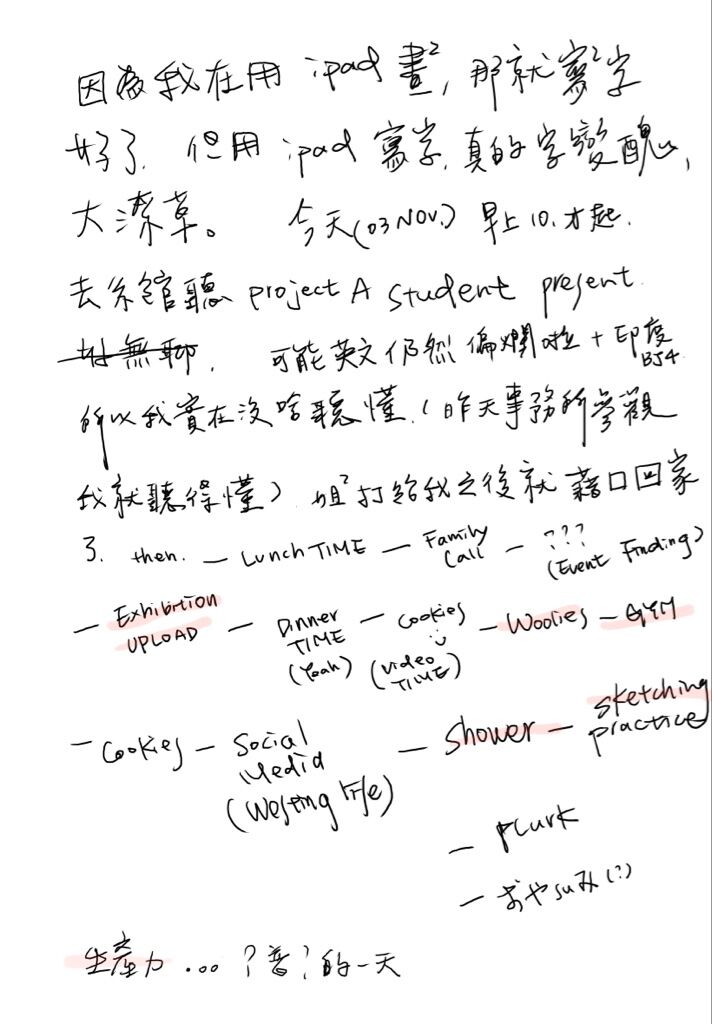 因為我在用 ipad 畫², 那就寫²字
好了. 但用 ipad 寫字, 真的字變醜,
大潦草。 今天(03 NOV.) 早上10.才起.
去系館聽 project A student present.
好無聊. 可能英文仍然偏爛啦 + 印度
BJ4
所以我實在沒啥聽懂.(昨天事務所參觀
我就聽得懂) 姐²打給我之後就藉口回家
了. then. — LUNCH TIME — Family Call — ??? (Event Finding)
— Exhibition UPLOAD — Dinner TIME (Yeah) — cookies (video TIME) — Woolies — GYM
— cookies — Social Media (Westing life) — Shower — sketching practice
— PLURK
— おやsuみ(?)
生產力 ... ?普?的一天